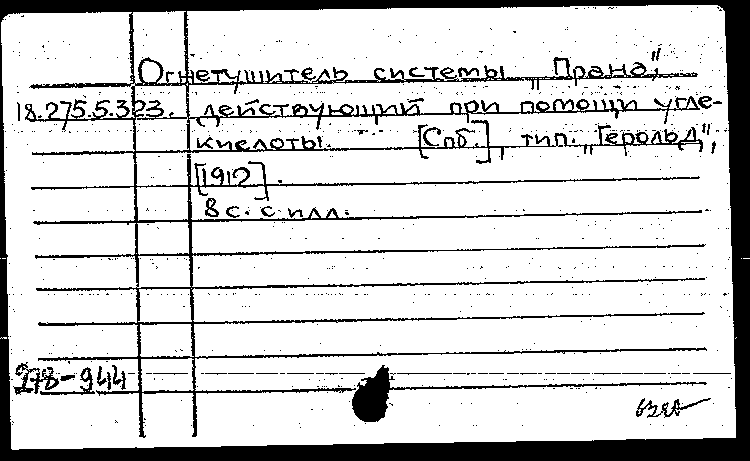 Огнетушитель системы „Прана",
18.275.5.323. действующий при помощи угле-
кислоты. [Спб.], тип. „Герольд",
[1912].
8 с. с илл.
278-944